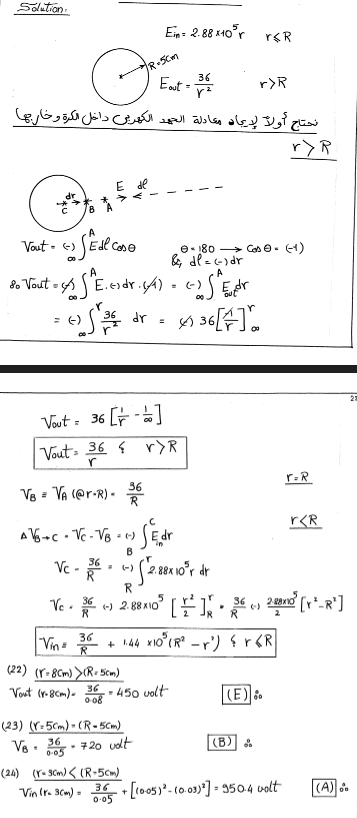 Solution:
E_in = 2.88×10^5 r    r≤R
R=5cm
E_out = 36/r^2    r>R
نحتاج أولاً لإيجاد معادلة الجهد الكهربي داخل الكرة وخارجها
r > R
E dl
dr
C B A
V_out = (-) ∫_∞^A E dl cosθ    θ = 180 → cosθ = (-1)
&, dl = (-) dr
so V_out = (-) ∫_∞^A E.(-) dr.(-1) = (-) ∫_∞^A E_out dr
= (-) ∫_∞^r 36/r^2 dr = (-) 36 [-1/r]_∞^r
21
V_out = 36 [1/r - 1/∞]
V_out = 36/r & r>R
V_B = V_A (@r=R) = 36/R    r=R
ΔV_B→C = V_C - V_B = (-) ∫_B^C E_in dr    r<R
V_C - 36/R = (-) ∫_R^r 2.88×10^5 r dr
V_C = 36/R (-) 2.88×10^5 [r^2/2]_R^r = 36/R (-) 2.88×10^5/2 [r^2 - R^2]
V_in = 36/R + 1.44 ×10^5 (R^2 - r^2) & r≤R
(22) (r=8cm)>(R=5cm)
V_out (r=8cm) = 36/0.08 = 450 volt    (E) ∴
(23) (r=5cm)=(R=5cm)
V_B = 36/0.05 = 720 volt    (B) ∴
(24) (r=3cm)<(R=5cm)
V_in (r=3cm) = 36/0.05 + [(0.05)^2-(0.03)^2] = 950.4 volt    (A) ∴